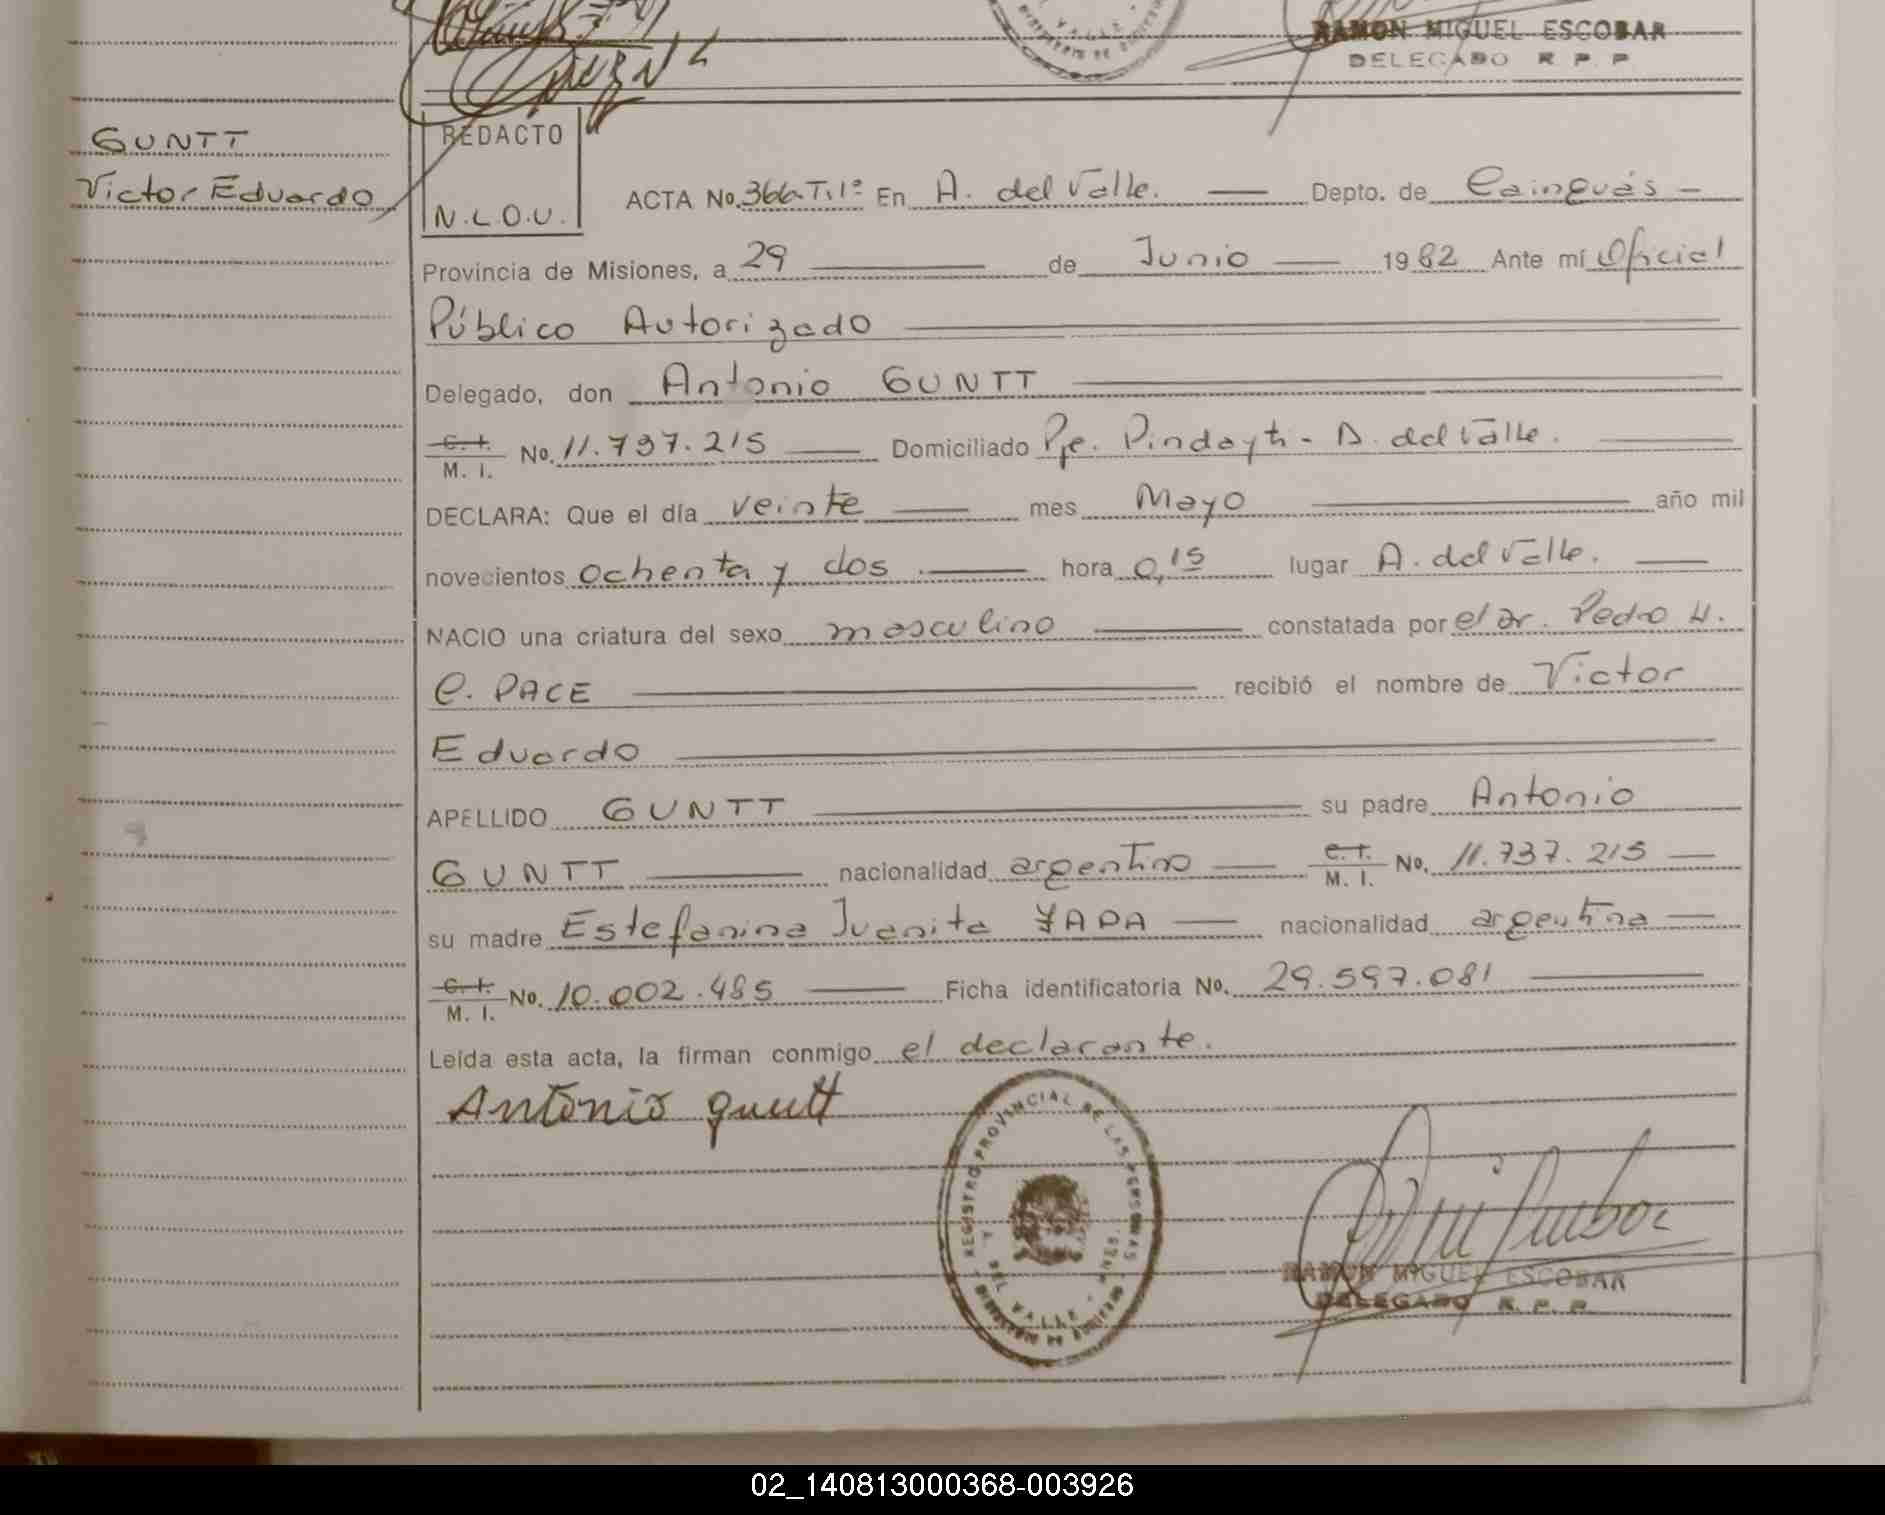 RAMON MIGUEL ESCOBAR
DELEGADO R P P
GUNTT
Victor Eduardo
REDACTO
N.L.O.U.
ACTA No. 366 T.1º En A. del Valle. Depto. de Cainguás
Provincia de Misiones, a 29 de Junio 1982 Ante mí Oficial
Público Autorizado
Delegado, don Antonio GUNTT
C.I. M. I. No. 11.737.215 Domiciliado Pje. Pindayti - A. del Valle.
DECLARA: Que el día veinte mes Mayo año mil
novecientos ochenta y dos hora 0,15 lugar A. del Valle.
NACIO una criatura del sexo masculino constatada por el Dr. Pedro H.
C. PACE recibió el nombre de Victor
Eduardo
APELLIDO GUNTT su padre Antonio
GUNTT nacionalidad argentino C.I. M. I. No. 11.737.215
su madre Estefanina Juanita YAPA nacionalidad argentina
C.I. M. I. No. 10.002.485 Ficha identificatoria No. 29.597.081
Leída esta acta, la firman conmigo el declarante.
Antonio guntt
REGISTRO PROVINCIAL DE LAS PERSONAS
DEL VALLE
RAMON MIGUEL ESCOBAR
DELEGADO R. P. P.
02_140813000368-003926